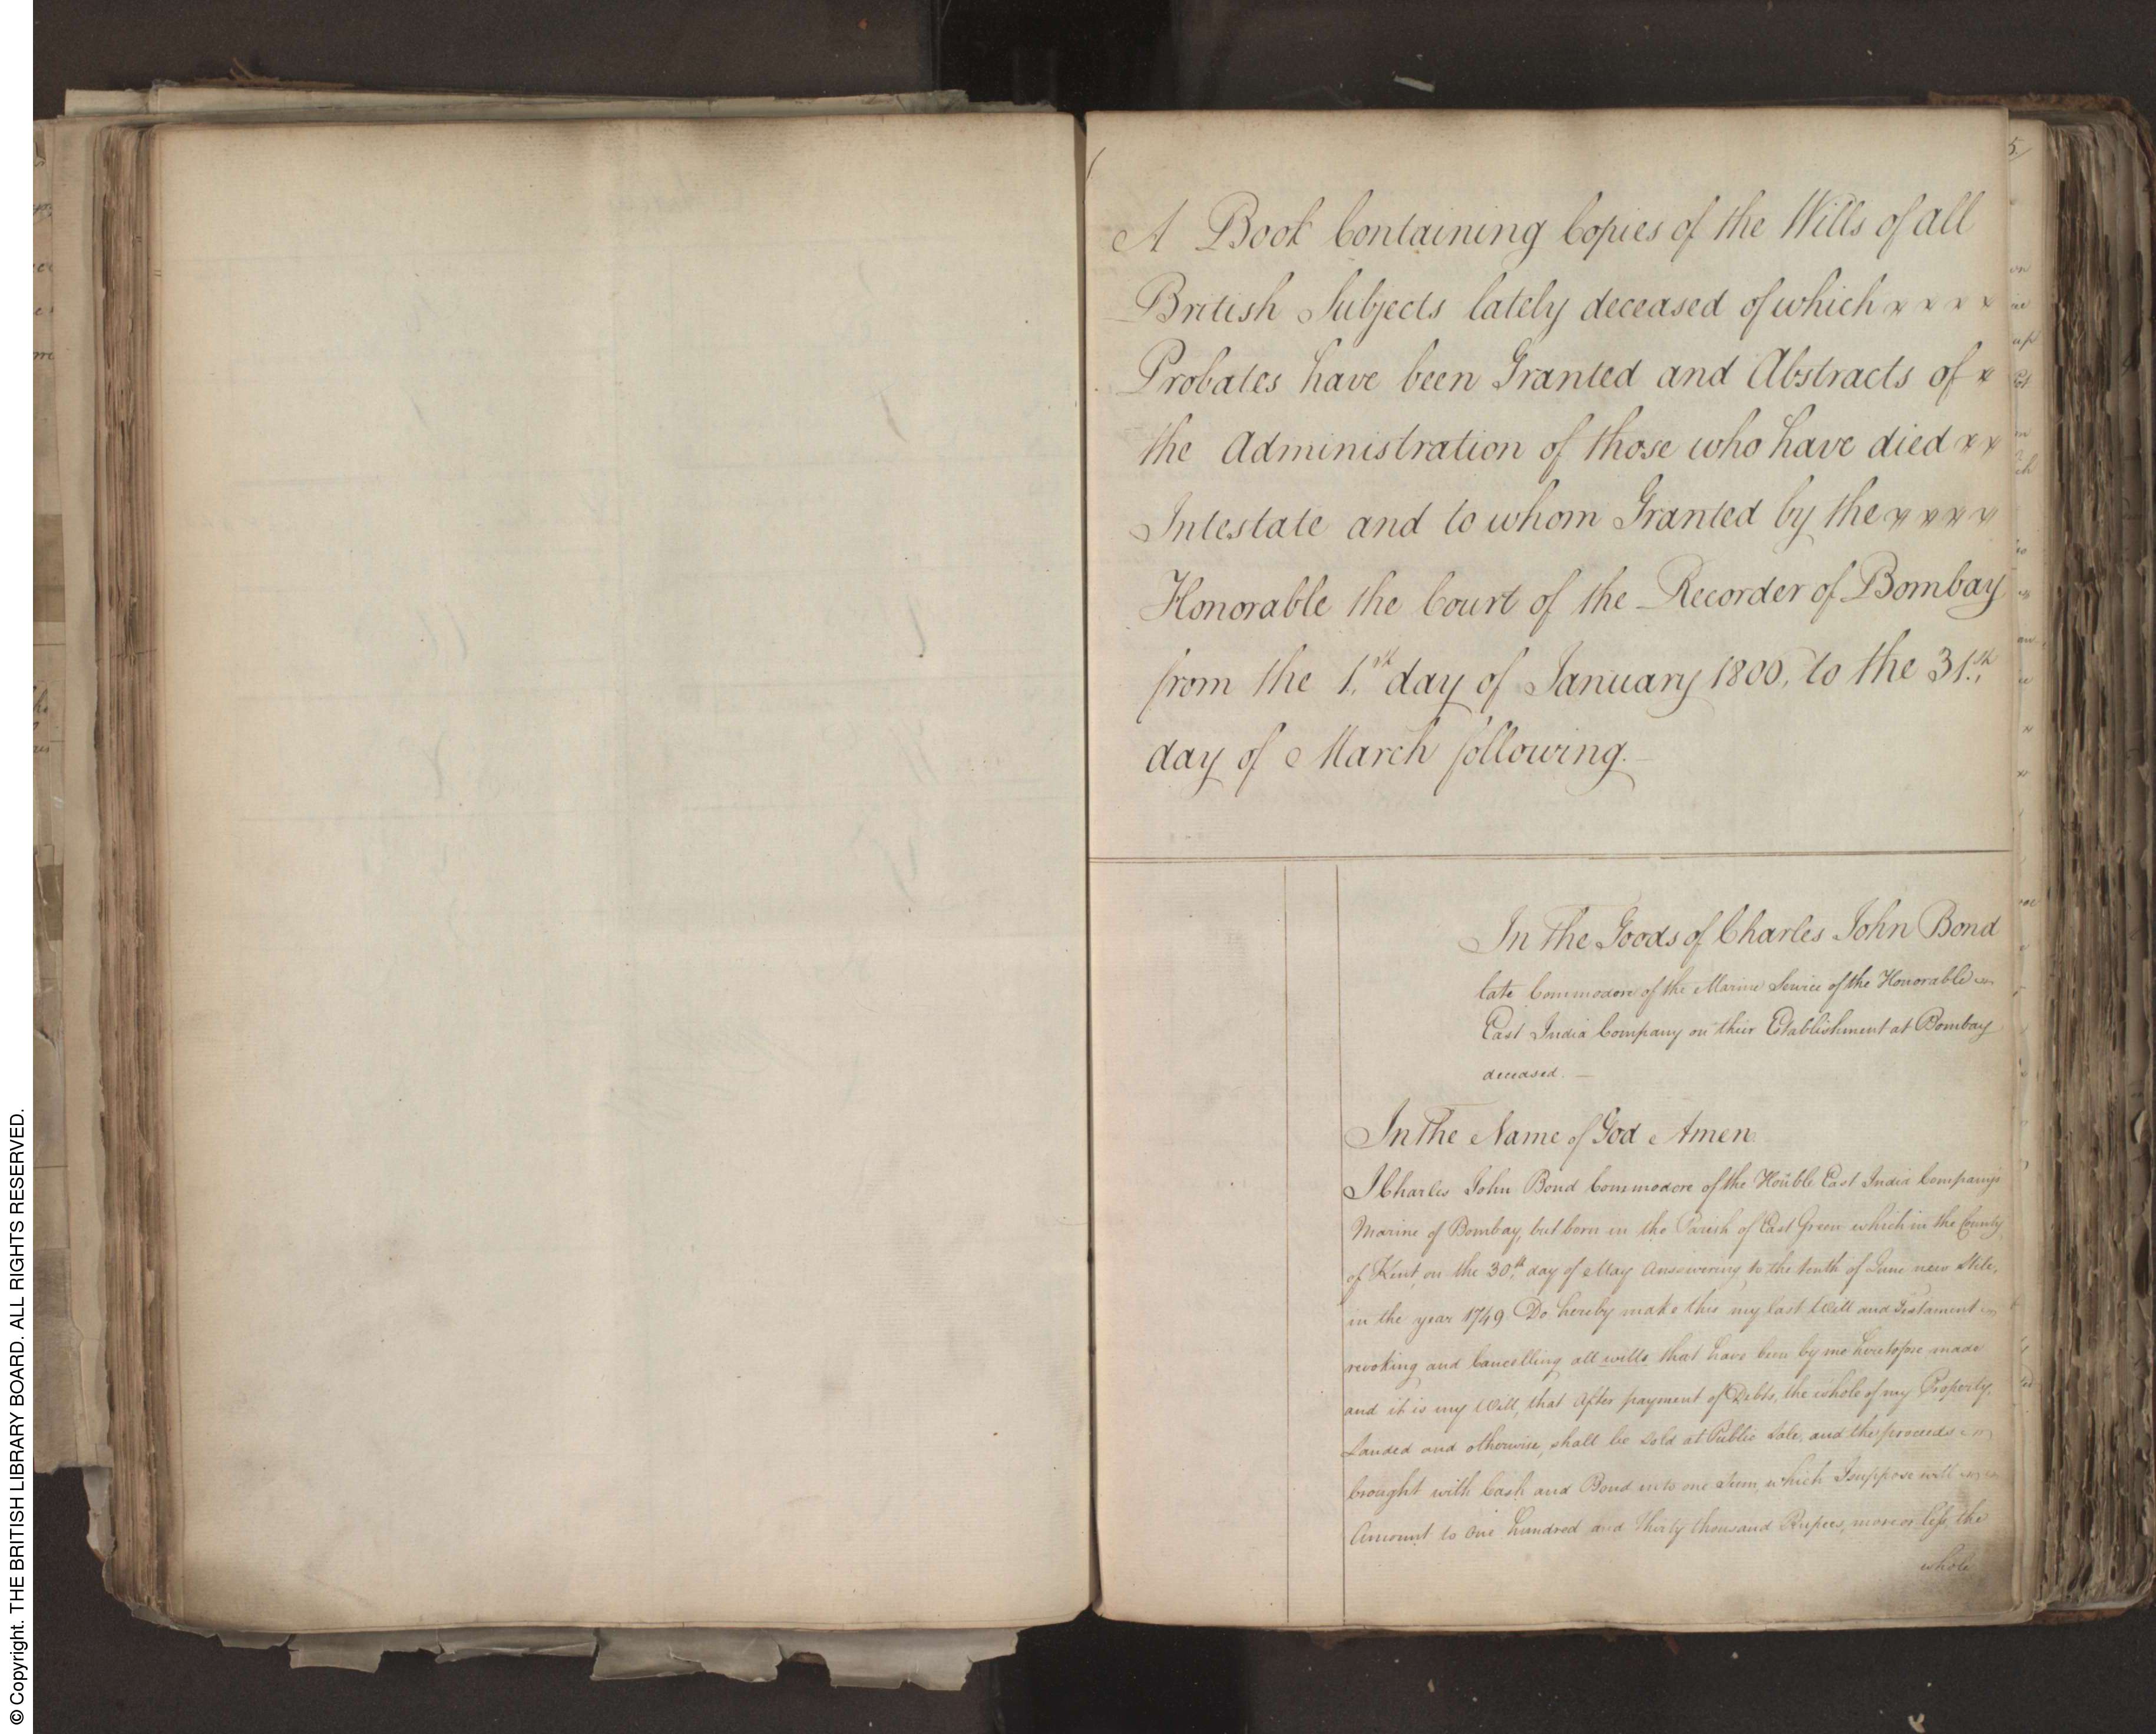 A Book Containing Copies of the Wills of all
British Subjects lately deceased of which
Probates have been Granted and Abstracts of
the Administration of those who have died
Intestate and to whom Granted by the
Honorable the Court of the Recorder of Bombay
from the 1.st day of January 1800, to the 31.st
day of March following.
In The Goods of Charles John Bond
late Commodore of the Marine Service of the Honorable
East India Company on their Establishment at Bombay
deceased. —
In The Name of God Amen
I Charles John Bond Commodore of the Hoñble East India Companys
Marine of Bombay, but born in the Parish of East Green which in the County
of Kent, on the 30.th day of May Answering to the tenth of June new Stile,
in the year 1749 Do hereby make this my last Will and Testament
revoking and Cancelling all wills, that have been by me heretofore made
and it is my Will, that After payment of Debts, the whole of my Property,
Landed and otherwise, shall be Sold at Public Sale, and the proceeds
brought with Cash and Bond into one Sum, which I suppose will
Amount to One hundred and thirty thousand Rupees, more or less, the
whole
© Copyright. THE BRITISH LIBRARY BOARD. ALL RIGHTS RESERVED.